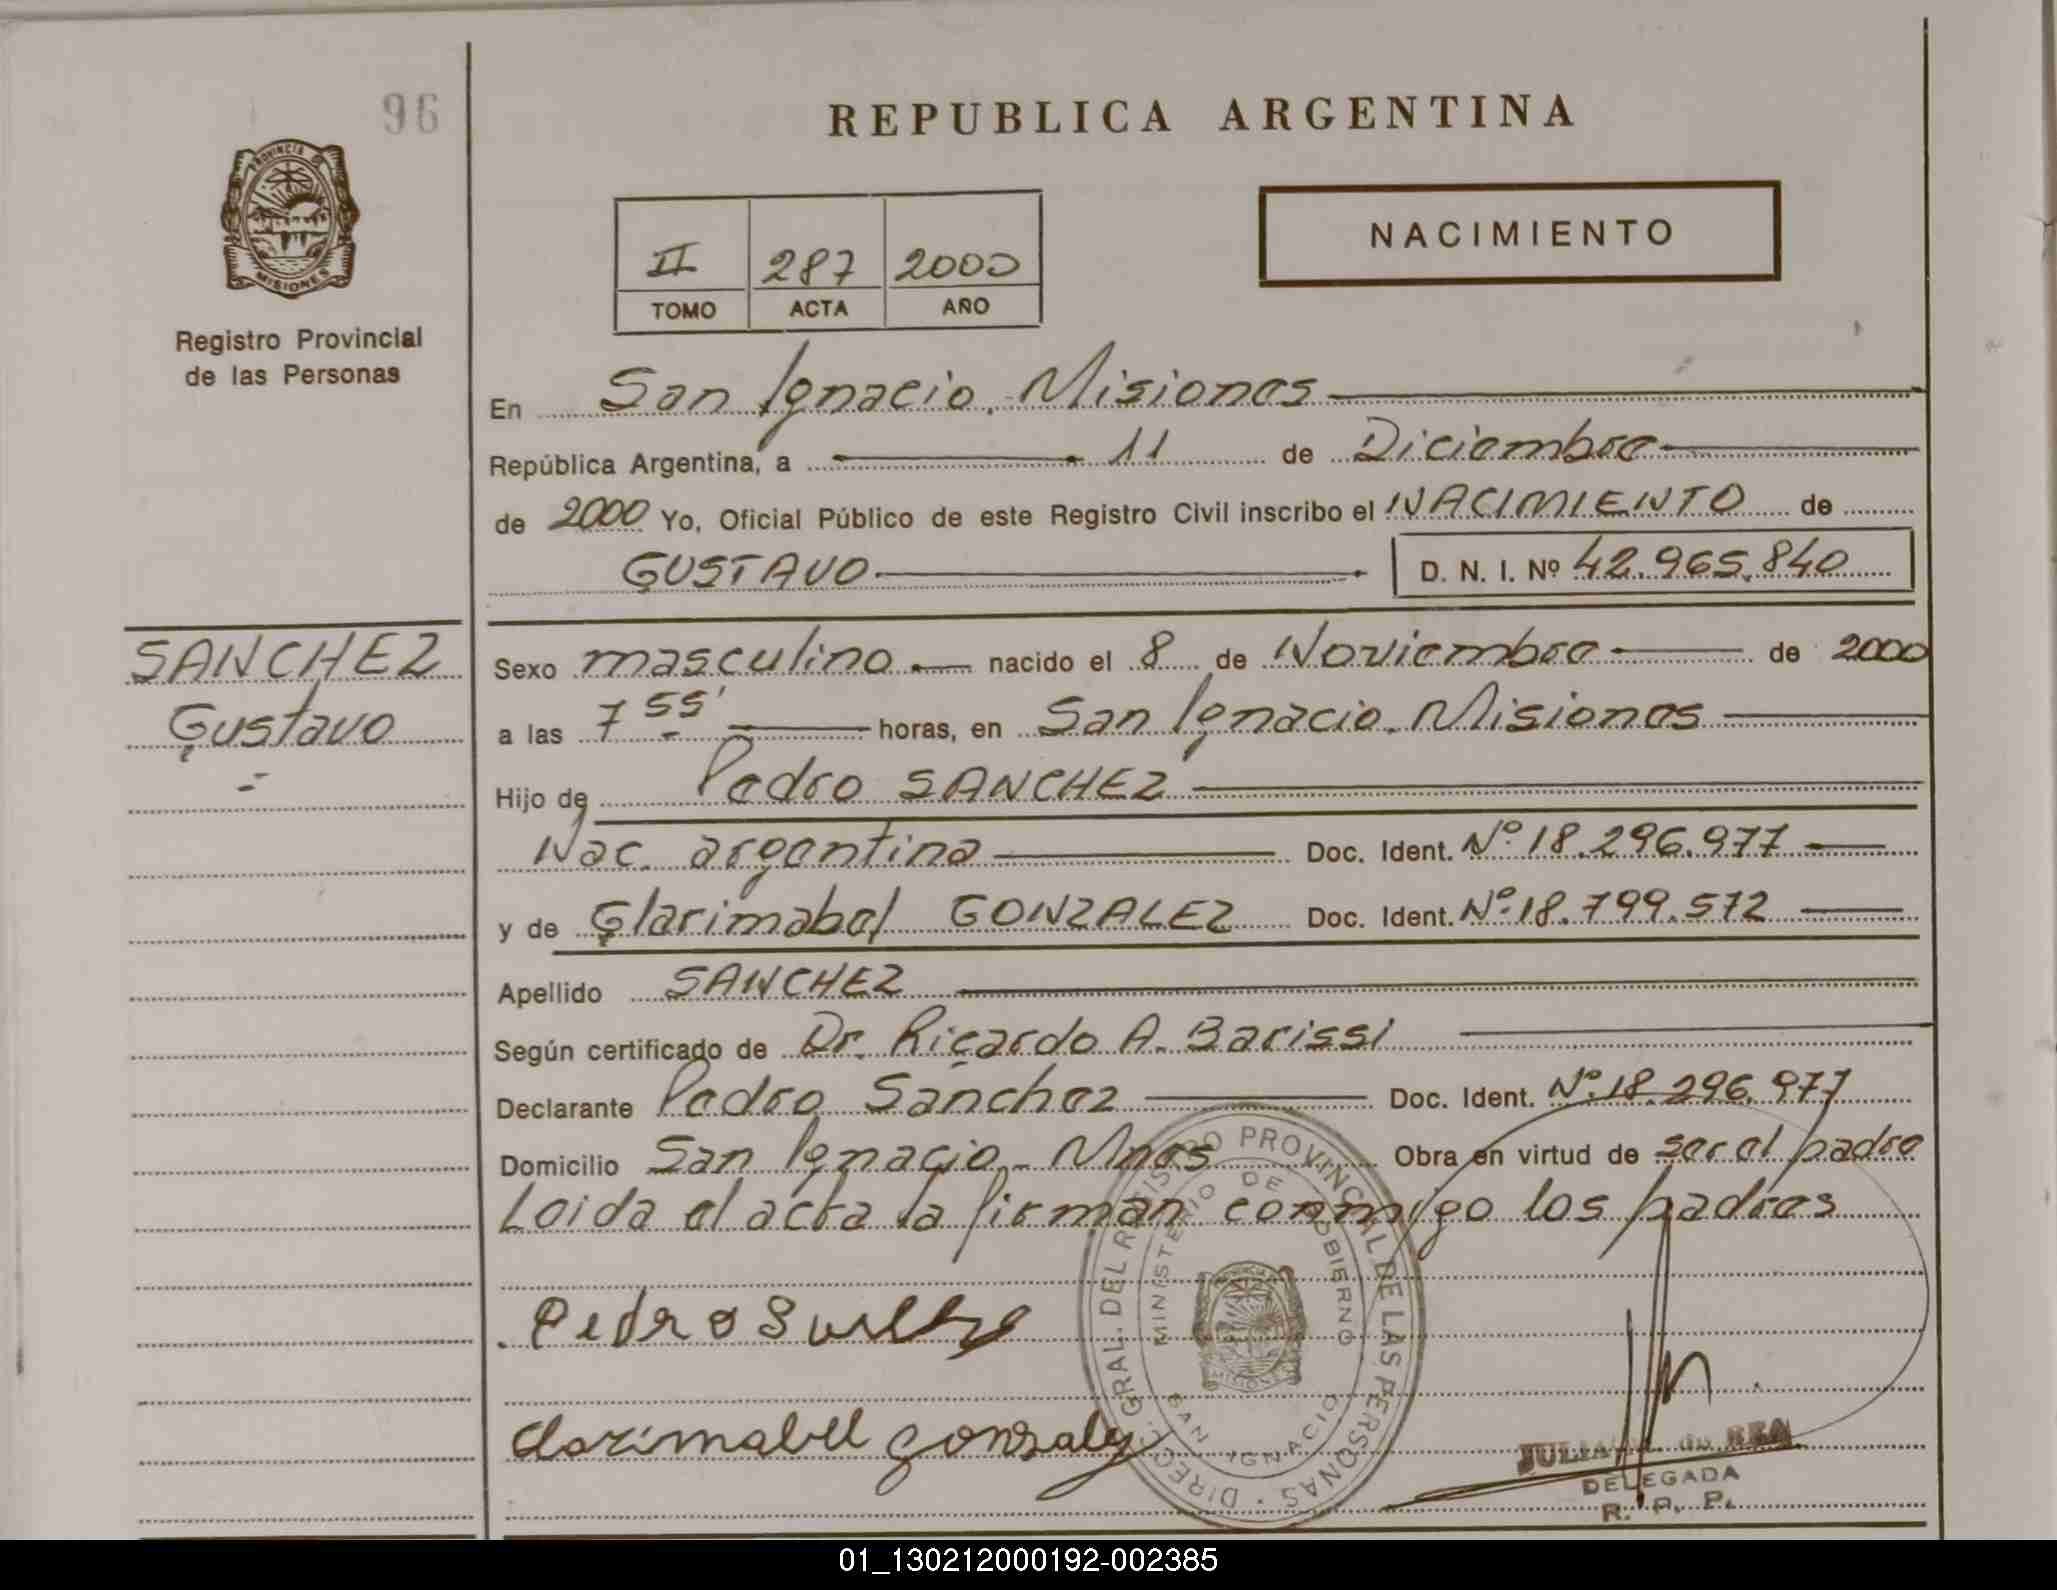 96
REPUBLICA ARGENTINA
PROVINCIA DE
MISIONES
Registro Provincial
de las Personas
NACIMIENTO
II 287 2000
TOMO ACTA AÑO
En San Ignacio. Misiones
República Argentina, a 11 de Diciembre
de 2000 Yo, Oficial Público de este Registro Civil inscribo el NACIMIENTO de
GUSTAVO D. N. I. Nº 42.965.840
SANCHEZ
Gustavo
Sexo masculino nacido el 8 de Noviembre de 2000
a las 7 55' horas, en San Ignacio. Misiones
Hijo de Pedro SANCHEZ
Nac. argentina Doc. Ident. Nº 18.296.977
y de Glarimabel GONZALEZ Doc. Ident. Nº 18.799.572
Apellido SANCHEZ
Según certificado de Dr. Ricardo A. Barissi
Declarante Pedro Sanchez Doc. Ident. Nº 18.296.977
Domicilio San Ignacio - Mnes Obra en virtud de ser el padre
Leida el acta la firman conmigo los padres
Pedro
Clarimabell Gonzalez
DIREC. GRAL. DEL REGISTRO PROVINCIAL DE LAS PERSONAS
MINISTERIO DE GOBIERNO
SAN IGNACIO
MISIONES
JULIA de REA
DELEGADA
R. P. P.
01_130212000192-002385